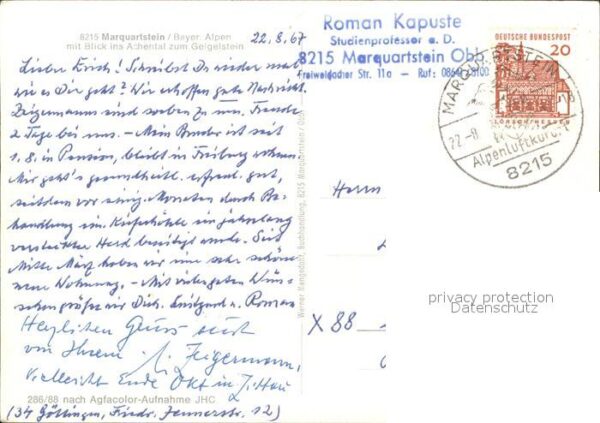 8215 Marquartstein / Bayer. Alpen
mit Blick ins Achental zum Geigelstein
22.8.67
Lieber Erich! Schreibst Du wieder mal
wie es Dir geht? Wir erhoffen gute Nachricht.
Zeigermanns sind soeben zu uns. Freude
2 Tage bei uns. – Mein Bruder ist seit
1.8. in Pension, bleibt in Freiburg wohnen.
Mir geht's gesundheitl. erfreul. gut,
seitdem vor einig. Monaten durch Be-
handlung im Kieferhöhle ein jahrelang
versteckter Herd beseitigt wurde. Seit
Mitte März haben wir eine sehr schöne
neue Wohnung. – Mit vielen guten Wün-
schen grüßen wir Dich. Luitgard u. Roman
Herzlichen Gruss auch
von Ihrem Zeigermann,
vielleicht Ende Okt in
286/88 nach Agfacolor-Aufnahme JHC
(34 Göttingen, Friedr. Jennerstr. 12)
Werner Mengedoht, Buchhandlung, 8215 Marquartstein / Obb.
Roman Kapuste
Studienprofessor a. D.
8215 Marquartstein Obb.
Str. 11a - Ruf:
DEUTSCHE BUNDESPOST
20
LORSCH/HESSEN
MARQUARTSTEIN
22.-8.
Alpenluftkurort
8215
Herrn
X 88
privacy protection
Datenschutz